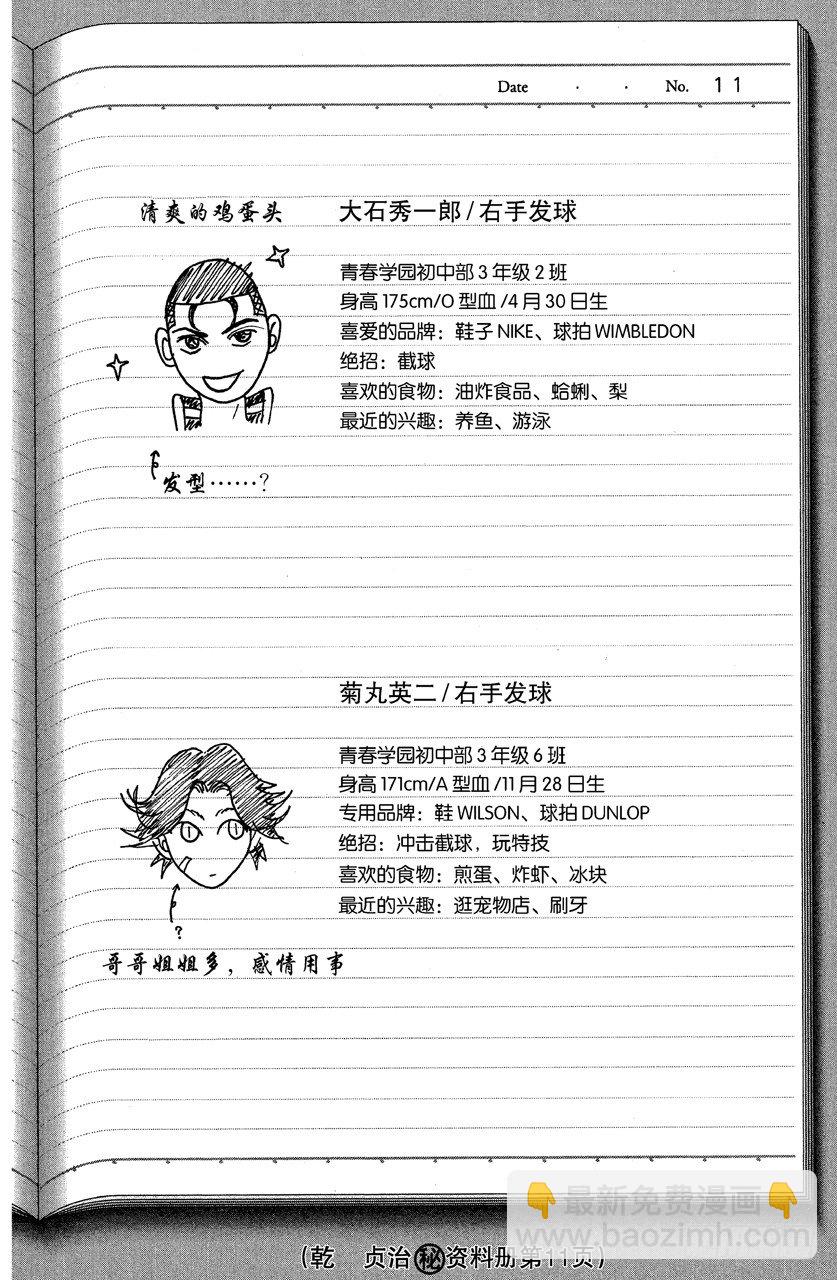 Date . . No. 11
清爽的鸡蛋头
大石秀一郎/右手发球
青春学园初中部3年级2班
身高175cm/O型血/4月30日生
喜爱的品牌：鞋子NIKE、球拍WIMBLEDON
绝招：截球
喜欢的食物：油炸食品、蛤蜊、梨
最近的兴趣：养鱼、游泳
发型……？
菊丸英二/右手发球
青春学园初中部3年级6班
身高171cm/A型血/11月28日生
专用品牌：鞋WILSON、球拍DUNLOP
绝招：冲击截球，玩特技
喜欢的食物：煎蛋、炸虾、冰块
最近的兴趣：逛宠物店、刷牙
？
哥哥姐姐多，感情用事
👇最新免费漫画👇
www.baozimh.com
（乾 贞治㊙资料册第11页）